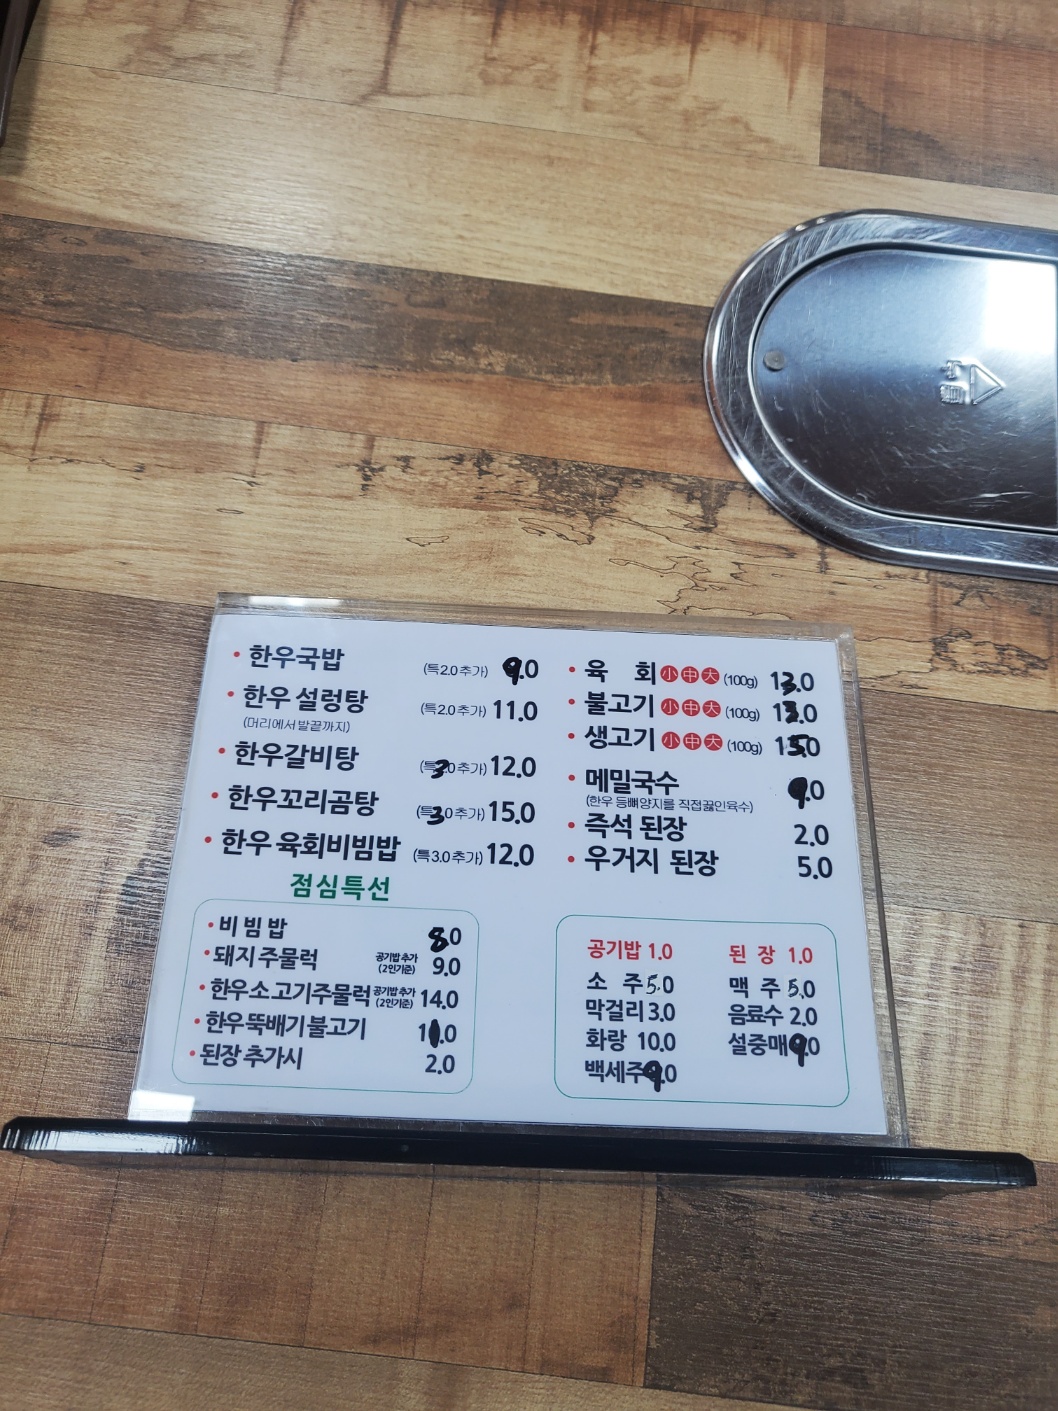 한우국밥 (특2.0추가) 9.0
한우 설렁탕 (특2.0추가) 11.0
(머리에서발끝까지)
한우갈비탕 (특3.0추가) 12.0
한우꼬리곰탕 (특3.0추가) 15.0
한우 육회비빔밥 (특3.0추가) 12.0
육 회 小 中 大 (100g) 13.0
불고기 小 中 大 (100g) 13.0
생고기 小 中 大 (100g) 15.0
메밀국수 9.0
(한우 등뼈양지를 직접끓인육수)
즉석 된장 2.0
우거지 된장 5.0
점심특선
비빔밥 8.0
돼지주물럭 공기밥 추가 (2인기준) 9.0
한우소고기주물럭 공기밥 추가 (2인기준) 14.0
한우뚝배기불고기 11.0
된장 추가시 2.0
공기밥 1.0
소 주 5.0
막걸리 3.0
화랑 10.0
백세주 9.0
된 장 1.0
맥 주 5.0
음료수 2.0
설중매 9.0